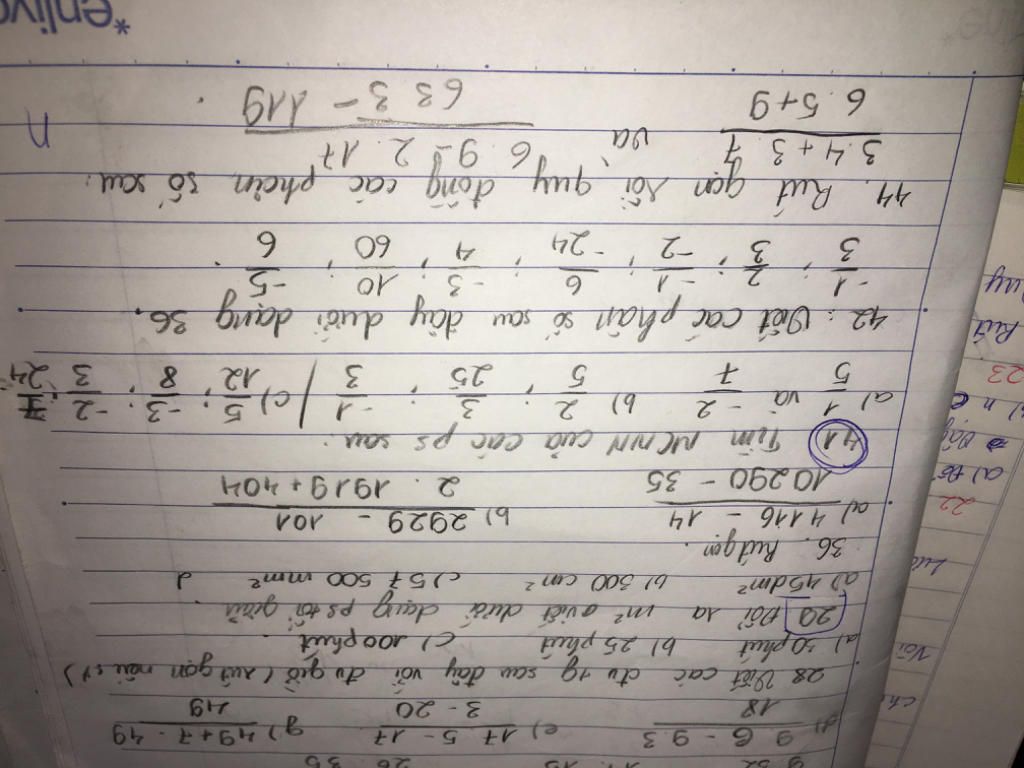 9.6 - 9.3 / 18 e) 17.5 - 17 / 3 - 20 g) 49 + 7.49 / 49
28 Viết các đv tg sau đây với đv giờ (rút gọn nếu
a) 30 phút b) 25 phút c) 100 phút
29 Đổi ra m² viết dưới dạng ps tối giản
a) 45 dm² b) 300 cm² c) 57 500 mm²
36. Rút gọn.
a) 4116 - 14 / 10290 - 35 b) 2929 - 101 / 2.1919 + 404
41 Tìm MCNN của các ps sau:
a) 1/5 và -2/7 b) 2/5 ; 3/25 ; -1/3 | c) 5/12 ; -3/8 ; -2/3 ; 7/24
42: Viết các phân số sau đây dưới dạng 36.
-1/3 ; 2/3 ; -1/-2 ; 6/-24 ; -3/4 ; 10/60 ; -5/6
44. Rút gọn rồi quy đồng các phân số sau:
3.4 + 3.7 / 6.5 + 9 và 6.9 - 2.17 / 63.3 - 119
n
*enliv
22
a) Đổ
23
a) n
Rút
Quy
Với